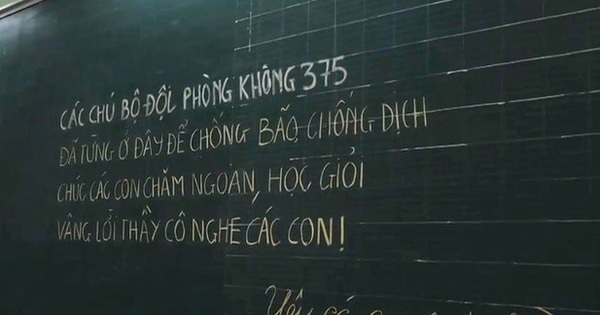 CÁC CHÚ BỘ ĐỘI PHÒNG KHÔNG 375
ĐÃ TỪNG Ở ĐÂY ĐỂ CHỐNG BÃO, CHỐNG DỊCH
CHÚC CÁC CON CHĂM NGOAN, HỌC GIỎI
VÂNG LỜI THẦY CÔ NGHE CÁC CON!
Yêu cá